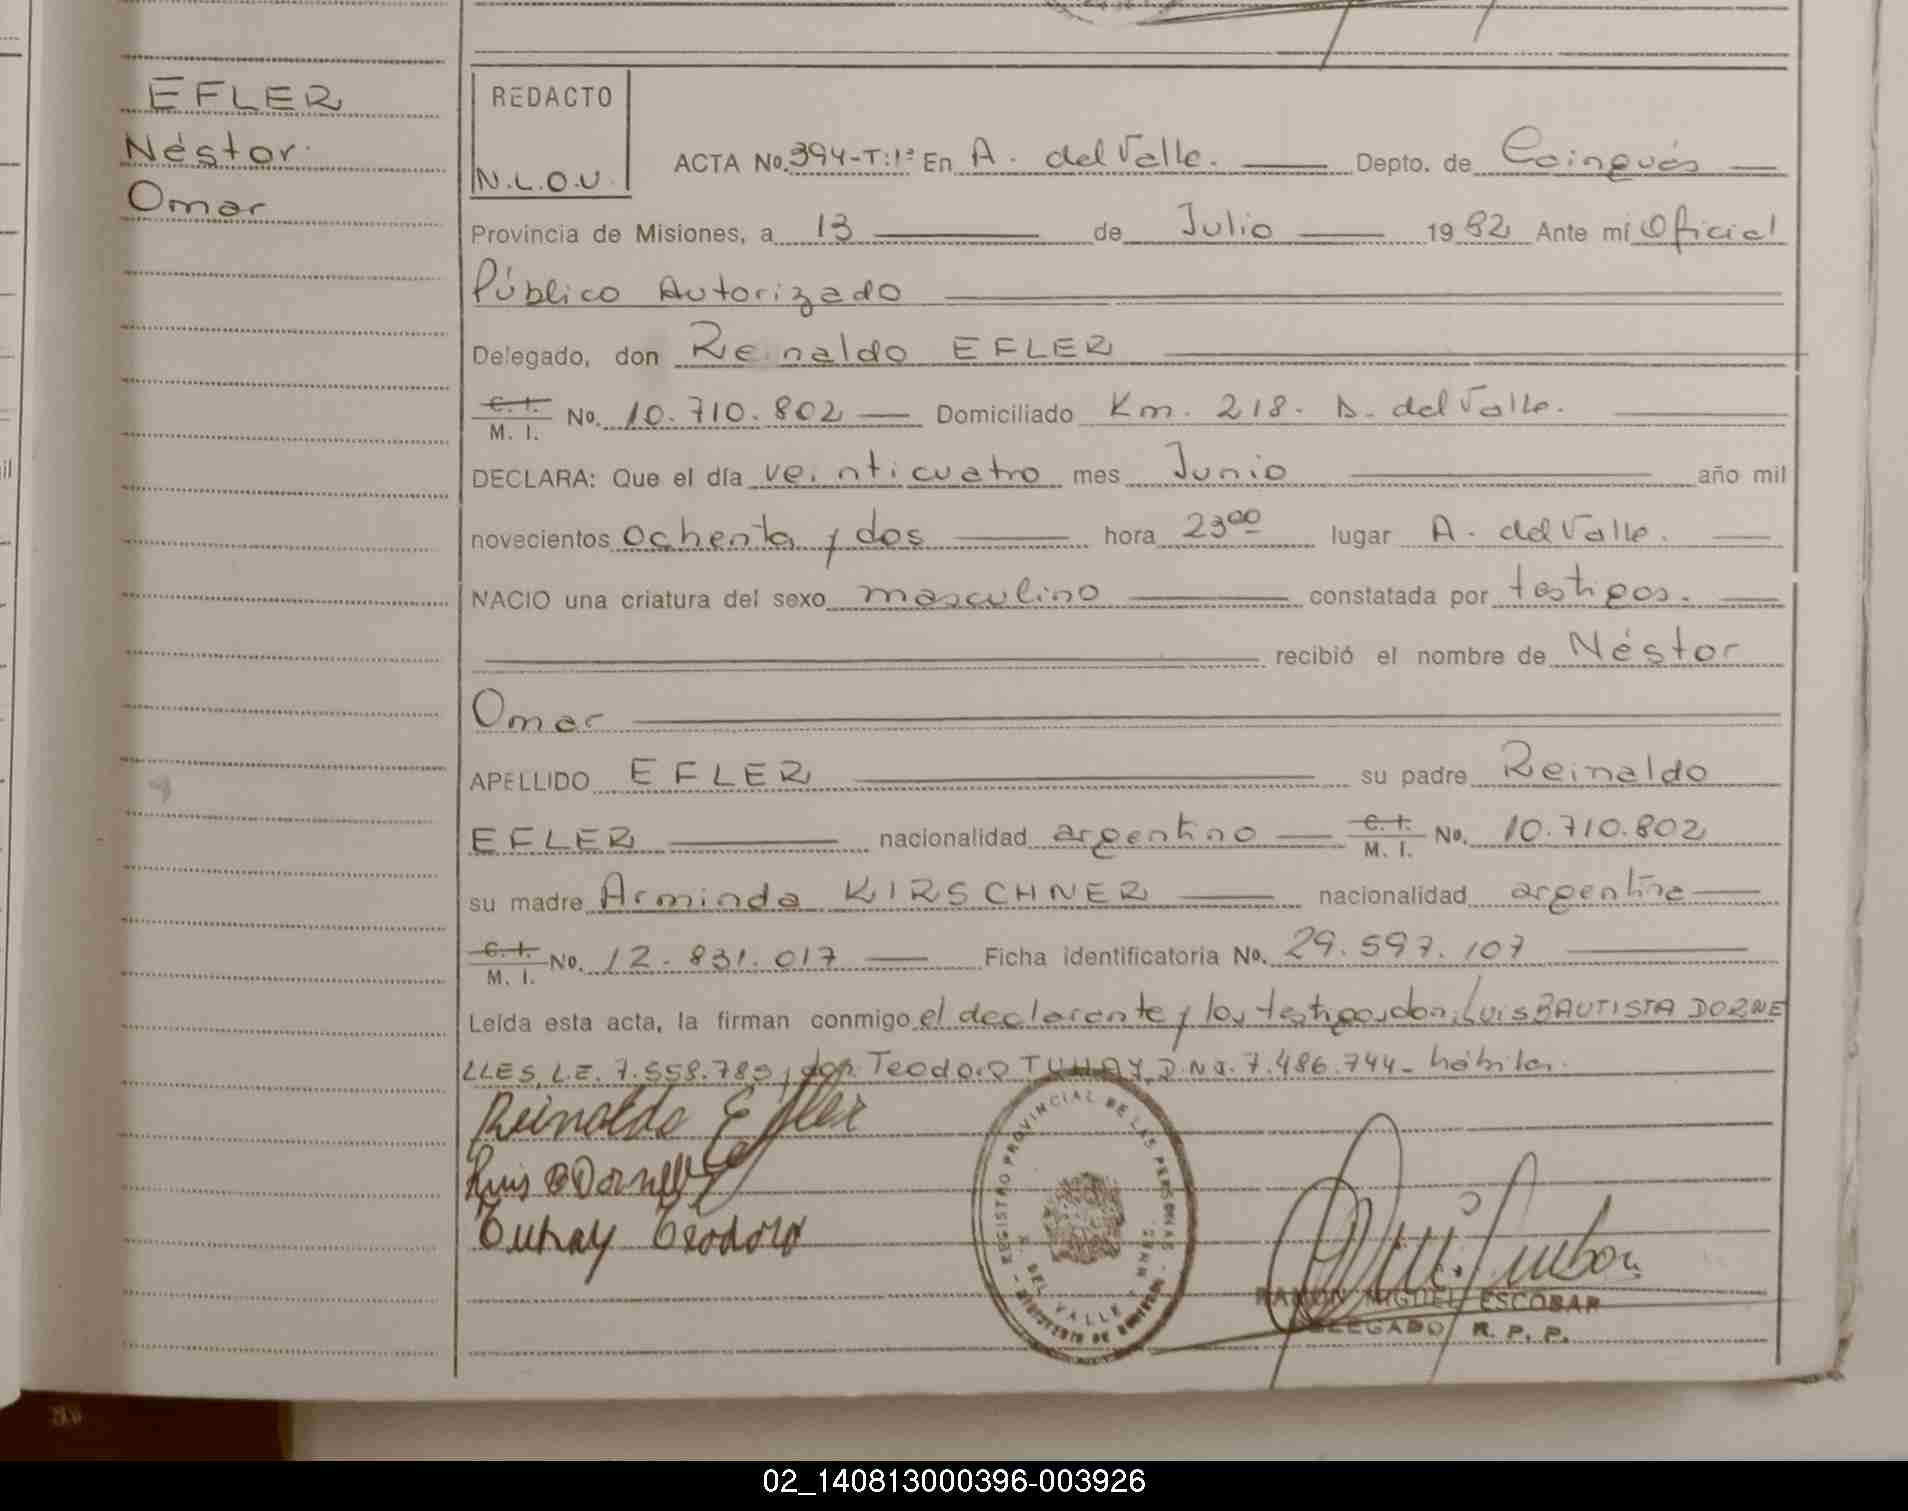 EFLER
Néstor
Omar
REDACTO
N.L.O.U.
ACTA No. 394-T:1º En A. del Valle. Depto. de Cainguás
Provincia de Misiones, a 13 de Julio 1982 Ante mí Oficial
Público Autorizado
Delegado, don Reinaldo EFLER
C. I. / M. I. No. 10.710.802 Domiciliado Km. 218. A. del Valle.
DECLARA: Que el día veinticuatro mes Junio año mil
novecientos ochenta y dos hora 23⁰⁰ lugar A. del Valle.
NACIO una criatura del sexo masculino constatada por testigos.
recibió el nombre de Néstor
Omar
APELLIDO EFLER su padre Reinaldo
EFLER nacionalidad argentino C. I. / M. I. No. 10.710.802
su madre Arminda KIRSCHNER nacionalidad argentina
C. I. / M. I. No. 12.831.017 Ficha identificatoria No. 29.597.107
Leída esta acta, la firman conmigo el declarante y los testigos don: Luis BAUTISTA DORNE
LLES, L.E. 7.558.783, don Teodoro TUHAY, D.N.I. 7.486.744- hábiles.
Reinaldo Efler
Luis B Dornelles
Tuhay Teodoro
REGISTRO PROVINCIAL DE LAS PERSONAS
DEL VALLE
RAMON MIGUEL ESCOBAR
DELEGADO R. P. P.
02_140813000396-003926